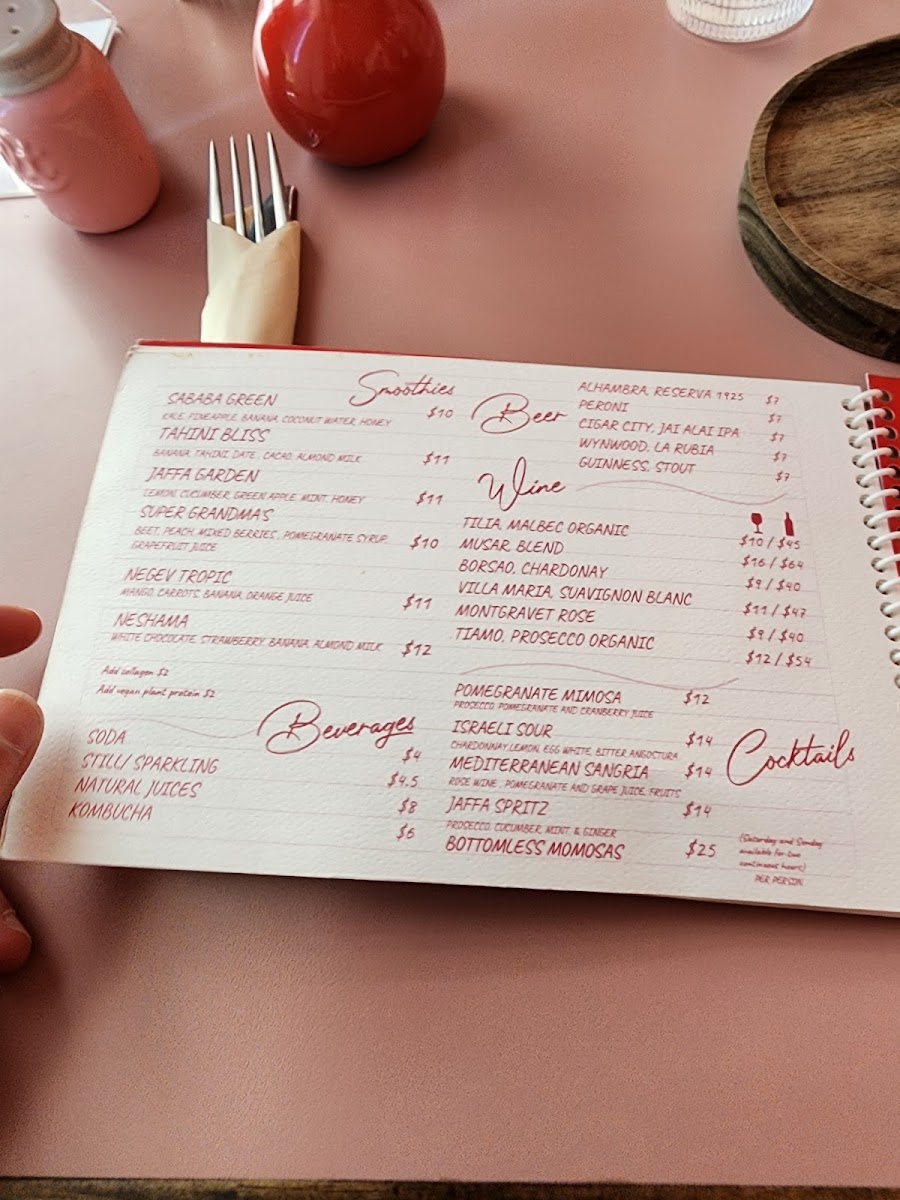 Smoothies
SABABA GREEN $10
KALE, PINEAPPLE, BANANA, COCONUT WATER, HONEY
TAHINI BLISS
BANANA, TAHINI, DATE, CACAO, ALMOND MILK $11
JAFFA GARDEN
LEMON, CUCUMBER, GREEN APPLE, MINT, HONEY $11
SUPER GRANDMA'S
BEET, PEACH, MIXED BERRIES, POMEGRANATE SYRUP, $10
GRAPEFRUIT JUICE
NEGEV TROPIC
MANGO, CARROTS, BANANA, ORANGE JUICE $11
NESHAMA
WHITE CHOCOLATE, STRAWBERRY, BANANA, ALMOND MILK $12
Add collagen $2
Add vegan plant protein $2
Beverages
SODA $4
STILL/ SPARKLING $4.5
NATURAL JUICES $8
KOMBUCHA $6
Beer
ALHAMBRA, RESERVA 1925 $7
PERONI $7
CIGAR CITY, JAI ALAI IPA $7
WYNWOOD, LA RUBIA $7
GUINNESS, STOUT $7
Wine
TILIA, MALBEC ORGANIC $10 / $45
MUSAR, BLEND $16 / $64
BORSAO, CHARDONAY $9 / $40
VILLA MARIA, SUAVIGNON BLANC $11 / $47
MONTGRAVET ROSE $9 / $40
TIAMO, PROSECCO ORGANIC $12 / $54
Cocktails
POMEGRANATE MIMOSA $12
PROSECCO, POMEGRANATE AND CRANBERRY JUICE
ISRAELI SOUR $14
CHARDONNAY, LEMON, EGG WHITE, BITTER ANGOSTURA
MEDITERRANEAN SANGRIA $14
ROSE WINE, POMEGRANATE AND GRAPE JUICE, FRUITS
JAFFA SPRITZ $14
PROSECCO, CUCUMBER, MINT, & GINGER
BOTTOMLESS MOMOSAS $25
(Saturday and Sunday
available for two
continuous hours)
PER PERSON